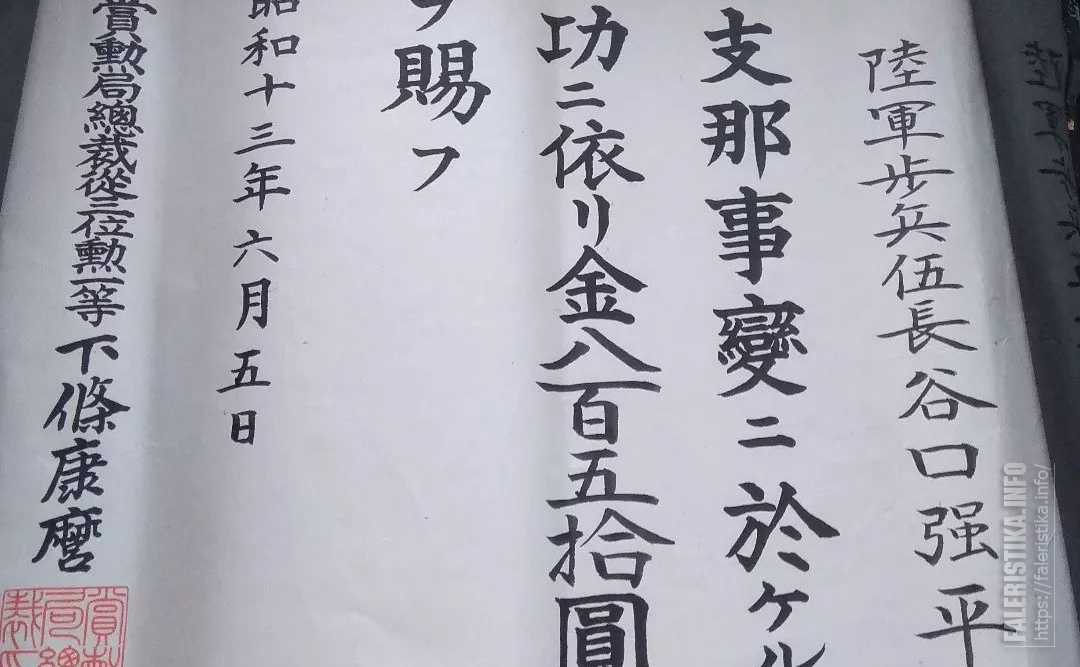 陸軍步兵伍長谷口强平
支那事變ニ於ケル
功ニ依リ金八百五拾圓
ヲ賜フ
昭和十三年六月五日
賞勲局總裁從三位勲一等下條康麿
FALERISTIKA.INFO
https://faleristika.info/